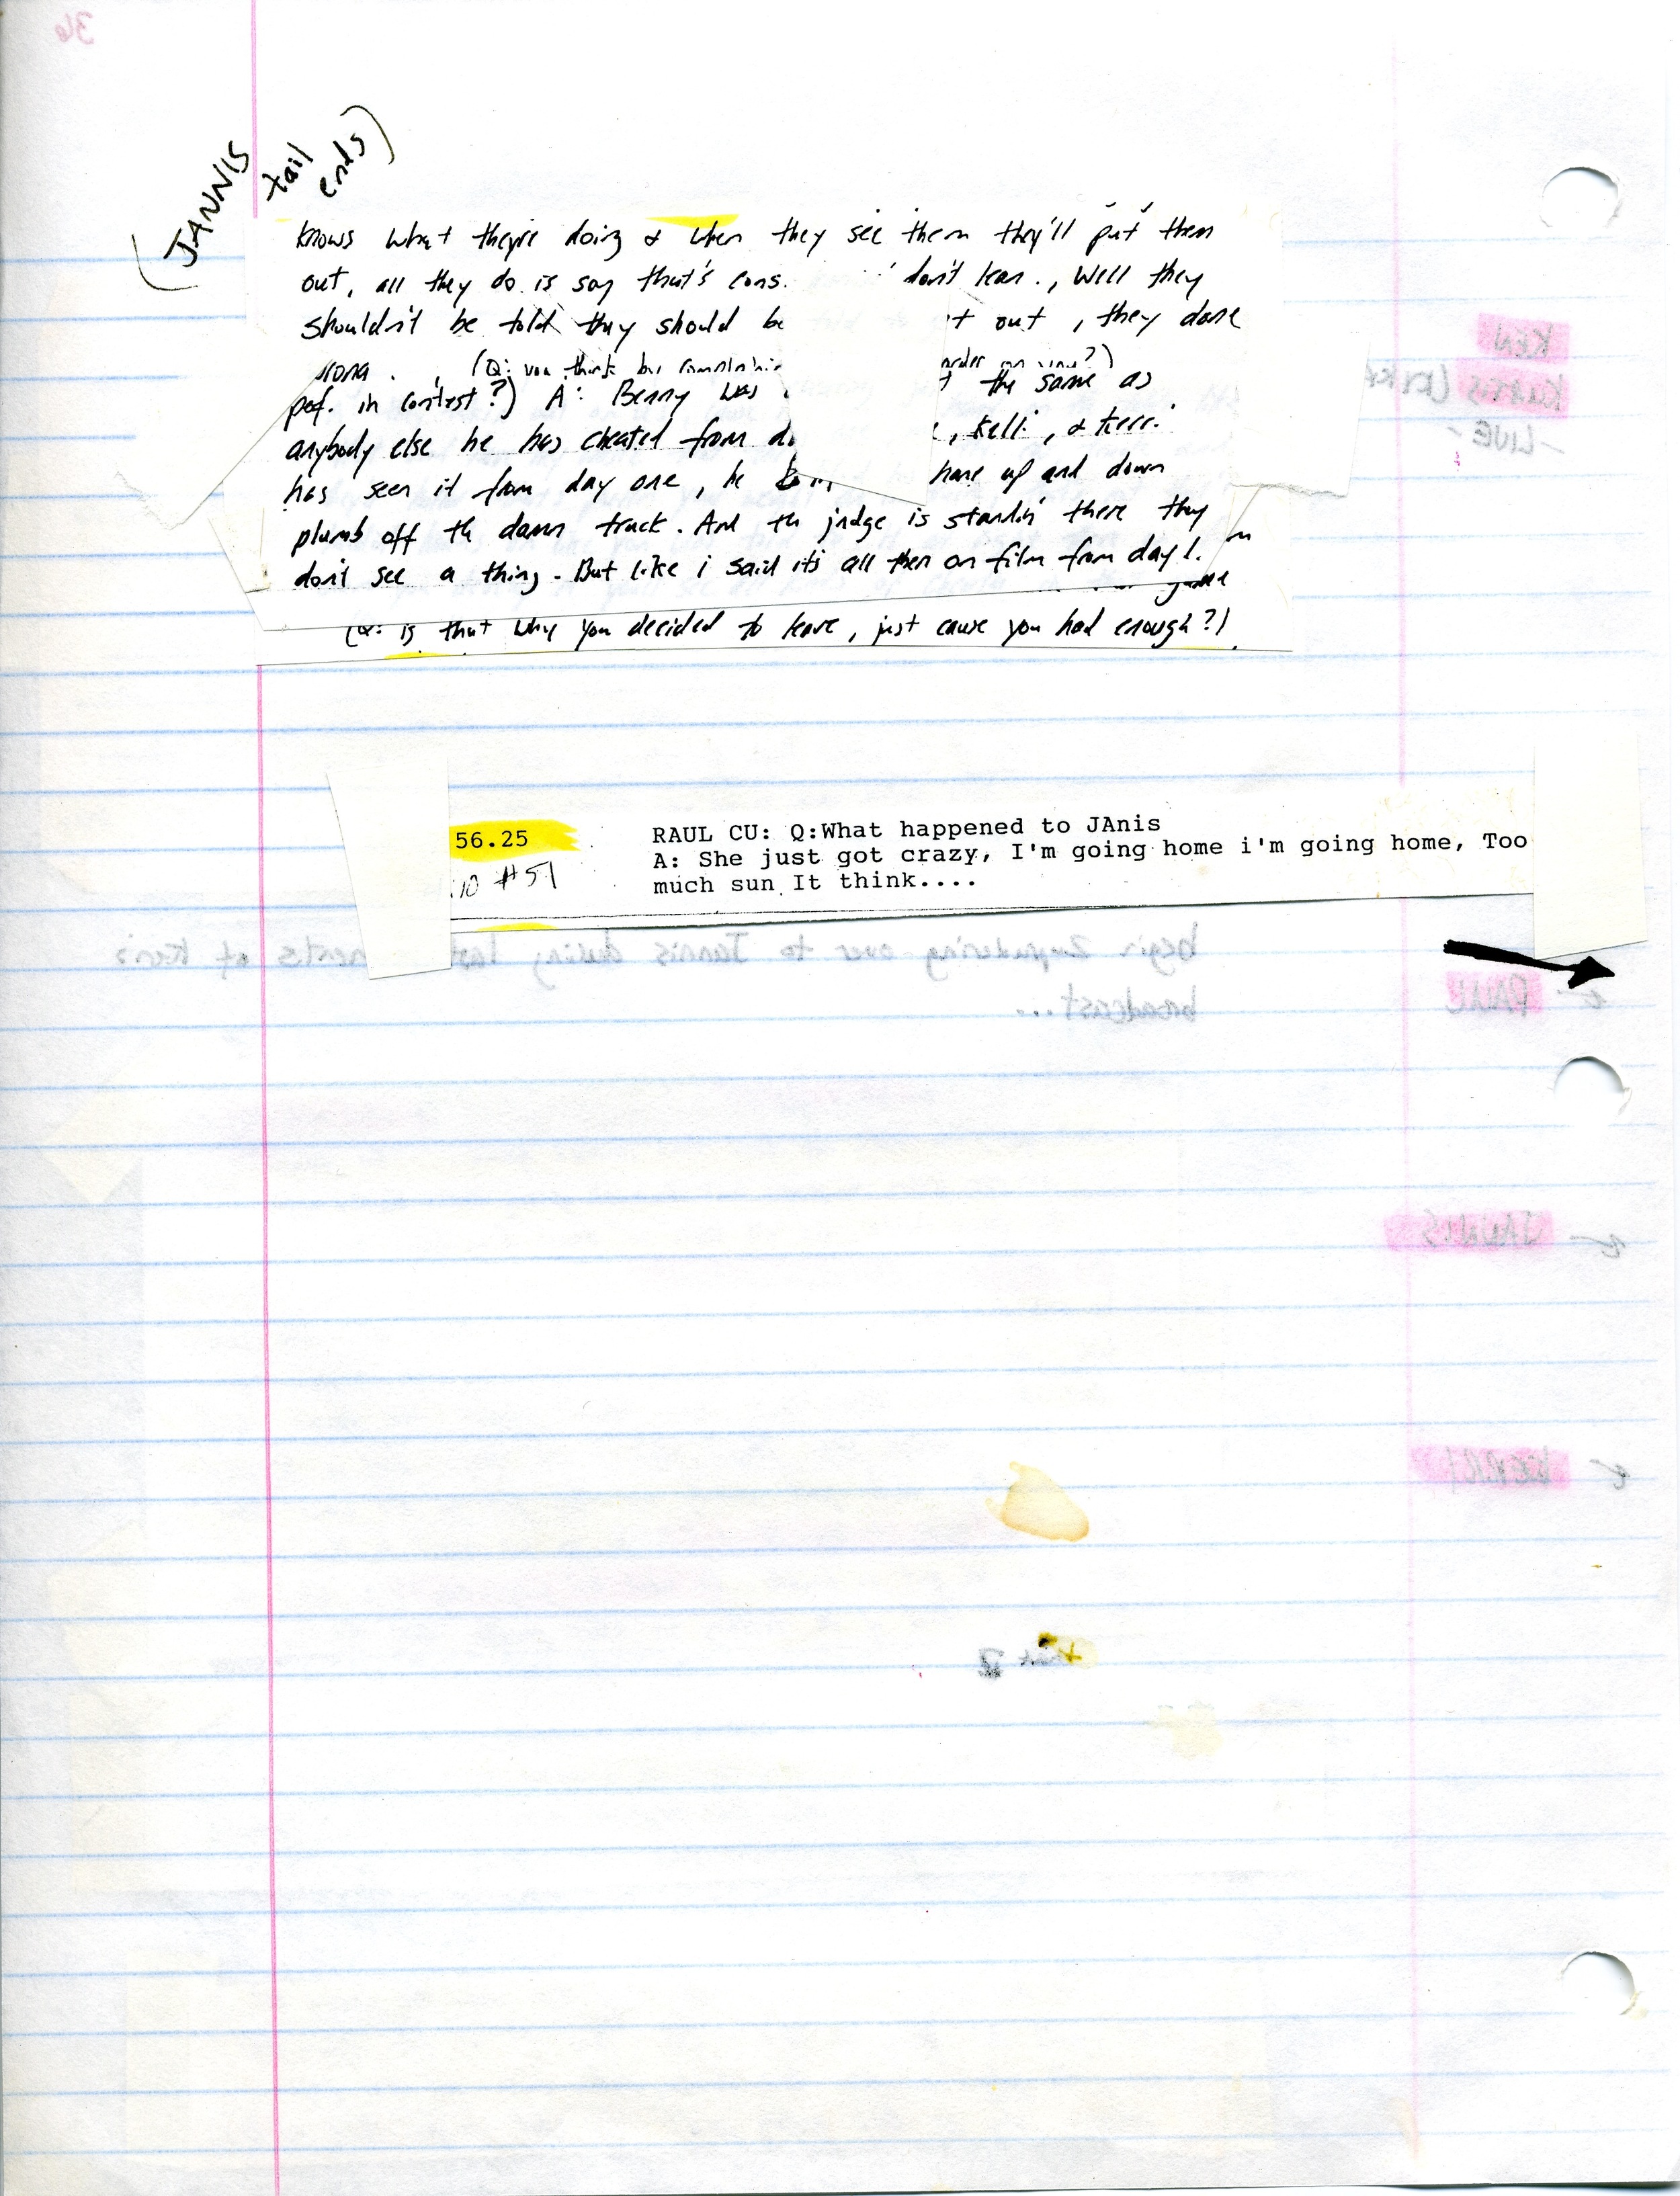 (JANNIS
tail
ends)
knows what they're doing & when they see them they'll put them
out, all they do is say that's cons. don't lean., well they
shouldn't be told they should be t out, they done
(Q: you think by order on you?)
in contest?) A: Benny was t the same as
anybody else he has cheated from d. , Kelli, & Kerri
has seen it from day one, he have up and down
plumb off th damn track. And th judge is standin' there they
don't see a thing. But like i said it's all then on film from day 1.
(Q: is that why you decided to leave, just cause you had enough?)
56.25 RAUL CU: Q:What happened to JAnis
A: She just got crazy, I'm going home i'm going home, Too
#51 much sun It think....
36
KEN
KURTIS
-LIVE-
begin over to Jannis during last of Ken's
broadcast...
RAUL
JANNIS
KERRI